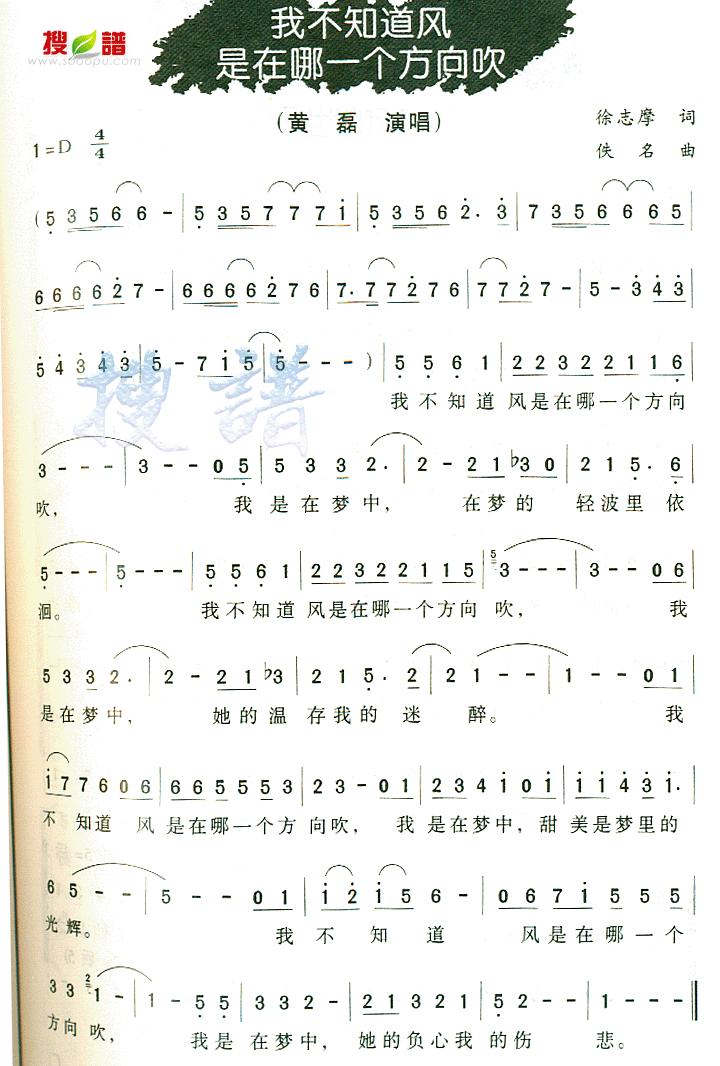 搜譜
www.sooopu.com
我不知道风
是在哪一个方向吹
(黄 磊 演唱)
徐志摩 词
佚 名 曲
1=D 4/4
(5 3 5 6 6 6 - | 5 3 5 7 7 7 1 | 5 3 5 6 2. 3 | 7 3 5 6 6 6 6 5 |
6 6 6 6 2 7 - | 6 6 6 6 2 7 6 | 7. 7 7 2 7 6 | 7 7 2 7 - | 5 - 3 4 3 |
5 4 3 4 3 | 5 - 7 1 5 | 5 - - - ) | 5 5 6 1 | 2 2 3 2 2 1 1 6 |
我 不 知 道 风是在哪一个方向
3 - - - | 3 - - 0 5 | 5 3 3 2. | 2 - 2 1 b3 0 | 2 1 5. 6 |
吹, 我 是在梦中, 在梦的 轻波里依
5 - - - | 5 - - - | 5 5 6 1 | 2 2 3 2 2 1 1 5 | 3 - - - | 3 - - 0 6 |
洄。 我不知道 风是在哪一个方向 吹, 我
5 3 3 2. | 2 - 2 1 b3 | 2 1 5. 2 | 2 1 - - | 1 - - 0 1 |
是在梦中, 她的温 存我的 迷 醉。 我
1 7 7 6 0 6 | 6 6 5 5 5 5 3 | 2 3 - 0 1 | 2 3 4 1 0 1 | 1 1 4 3 1. |
不 知道 风 是在哪一个方 向吹, 我 是在梦中, 甜 美是梦里的
6 5 - - | 5 - - 0 1 | 1 2 1 5 6 - | 0 6 7 1 5 5 5 |
光辉。 我 不 知 道 风是在哪 一 个
3 3 2 1 - | 1 - 5 5 | 3 3 2 - | 2 1 3 2 1 | 5 2 - - | 1 - - - ‖
方向 吹, 我是 在梦中, 她的负心我 的伤 悲。